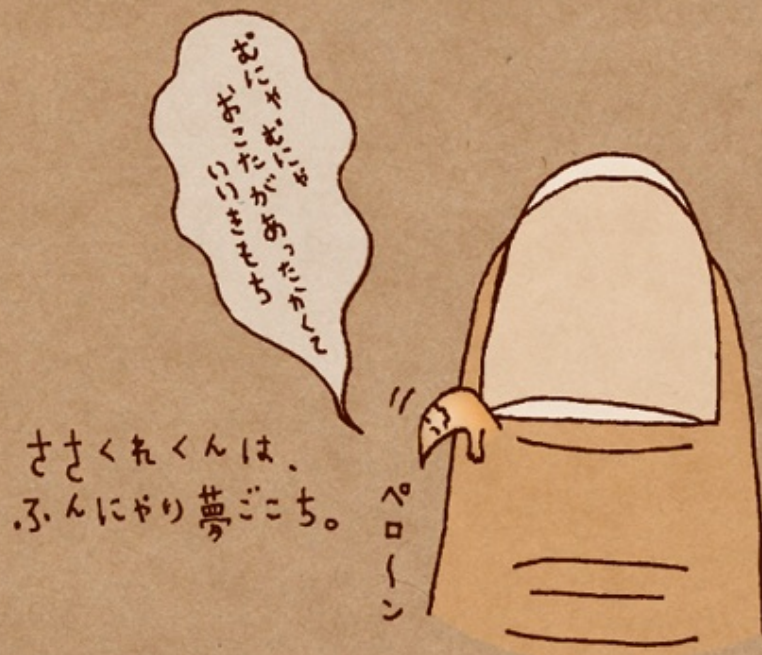 むにゃむにゃ
おこたがあったかくて
いいきもち
ささくれくんは、
ふんにゃり夢ごこち。
ペロ〜ン